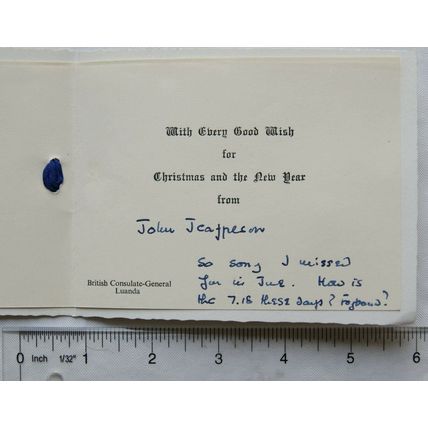 With Every Good Wish
for
Christmas and the New Year
from
John
So sorry I missed
you in June. How is
the 7.18 these days? Fogbound?
British Consulate-General
Luanda
0 Inch 1/32" 1 2 3 4 5 6